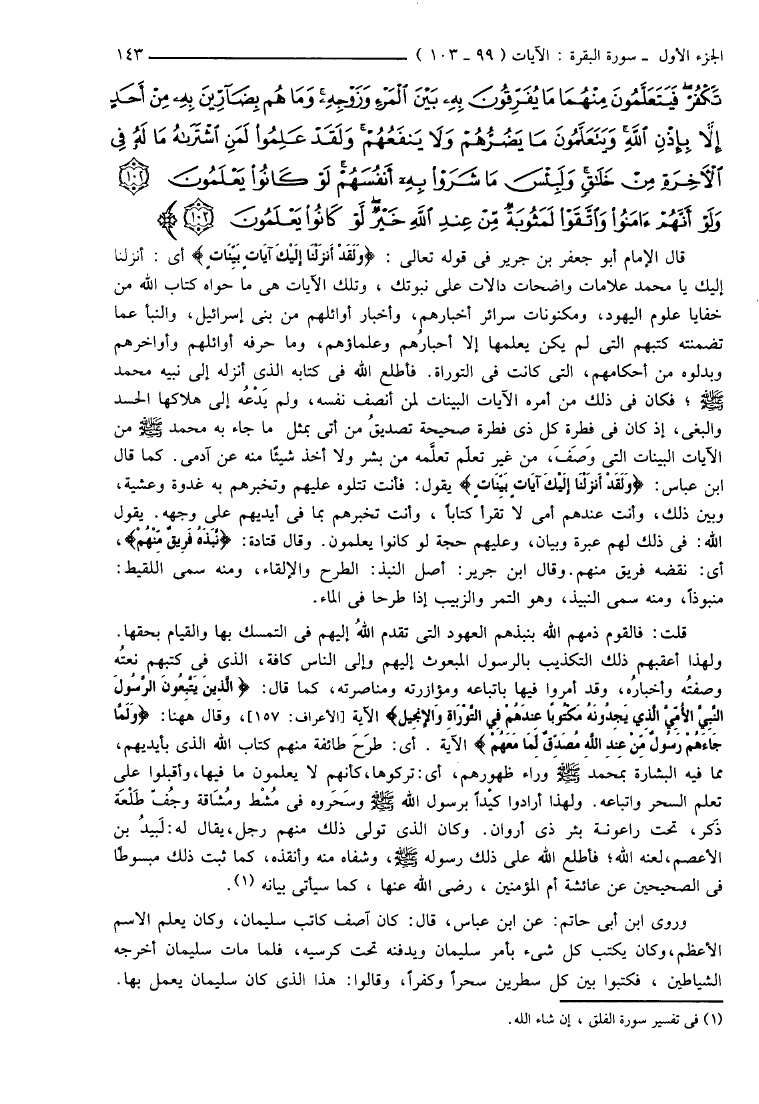 الجزء الأول ـ سورة البقرة : الآيات ( ٩٩ ـ ١٠٣ ) ١٤٣
تَكْفُرْ فَيَتَعَلَّمُونَ مِنْهُمَا مَا يُفَرِّقُونَ بِهِۦ بَيْنَ ٱلْمَرْءِ وَزَوْجِهِۦ وَمَا هُم بِضَآرِّينَ بِهِۦ مِنْ أَحَدٍ
إِلَّا بِإِذْنِ ٱللَّهِ وَيَتَعَلَّمُونَ مَا يَضُرُّهُمْ وَلَا يَنفَعُهُمْ وَلَقَدْ عَلِمُوا۟ لَمَنِ ٱشْتَرَىٰهُ مَا لَهُۥ فِى
ٱلْأَخِرَةِ مِنْ خَلَٰقٍ وَلَبِئْسَ مَا شَرَوْا۟ بِهِۦٓ أَنفُسَهُمْ لَوْ كَانُوا۟ يَعْلَمُونَ ﴿١٠٢﴾
وَلَوْ أَنَّهُمْ ءَامَنُوا۟ وَٱتَّقَوْا۟ لَمَثُوبَةٌ مِّنْ عِندِ ٱللَّهِ خَيْرٌ لَّوْ كَانُوا۟ يَعْلَمُونَ ﴿١٠٣﴾ ﴾
قال الإمام أبو جعفر بن جرير فى قوله تعالى : ﴿وَلَقَدْ أَنزَلْنَا إِلَيْكَ آيَاتٍ بَيِّنَاتٍ﴾ أى : أنزلنا
إليك يا محمد علامات واضحات دالات على نبوتك ، وتلك الآيات هى ما حواه كتاب الله من
خفايا علوم اليهود، ومكنونات سرائر أخبارهم، وأخبار أوائلهم من بنى إسرائيل، والنبأ عما
تضمنته كتبهم التى لم يكن يعلمها إلا أحبارُهم وعلماؤهم، وما حرفه أوائلهم وأواخرهم
وبدلوه من أحكامهم، التى كانت فى التوراة. فأطلع الله فى كتابه الذى أنزله إلى نبيه محمد
ﷺ ؛ فكان فى ذلك من أمره الآيات البينات لمن أنصف نفسه، ولم يَدْعُه إلى هلاكها الحسد
والبغى، إذ كان فى فطرة كل ذى فطرة صحيحة تصديقُ من أتى بمثل ما جاء به محمد ﷺ من
الآيات البينات التى وَصَفَ، من غير تعلّم تعلَّمه من بشر ولا أخذ شيئًا منه عن آدمى. كما قال
ابن عباس: ﴿وَلَقَدْ أَنزَلْنَا إِلَيْكَ آيَاتٍ بَيِّنَاتٍ﴾ يقول: فأنت تتلوه عليهم وتخبرهم به غدوة وعشية،
وبين ذلك، وأنت عندهم أمى لا تقرأ كتاباً ، وأنت تخبرهم بما فى أيديهم على وجهه. يقول
الله: فى ذلك لهم عبرة وبيان، وعليهم حجة لو كانوا يعلمون. وقال قتادة: ﴿نَّبَذَهُ فَرِيقٌ مِّنْهُم﴾،
أى: نقضه فريق منهم.وقال ابن جرير: أصل النبذ: الطرح والإلقاء، ومنه سمى اللقيط:
منبوذاً، ومنه سمى النبيذ، وهو التمر والزبيب إذا طرحا فى الماء.
قلت: فالقوم ذمهم الله بنبذهم العهود التى تقدم اللهُ إليهم فى التمسك بها والقيام بحقها.
ولهذا أعقبهم ذلك التكذيب بالرسول المبعوث إليهم وإلى الناس كافة، الذى فى كتبهم نعتُه
وصفتُه وأخبارُه، وقد أمروا فيها باتباعه ومؤازرته ومناصرته، كما قال: ﴿الَّذِينَ يَتَّبِعُونَ الرَّسُولَ
النَّبِيَّ الأُمِّيَّ الَّذِي يَجِدُونَهُ مَكْتُوبًا عِندَهُمْ فِي التَّوْرَاةِ وَالإِنجِيلِ﴾ الآية [الأعراف: ١٥٧]، وقال ههنا: ﴿وَلَمَّا
جَاءَهُمْ رَسُولٌ مِّنْ عِندِ اللَّهِ مُصَدِّقٌ لِّمَا مَعَهُمْ﴾ الآية . أى: طرَحَ طائفة منهم كتاب الله الذى بأيديهم،
مما فيه البشارة بمحمد ﷺ وراء ظهورهم، أى:تركوها،كأنهم لا يعلمون ما فيها،وأقبلوا على
تعلم السحر واتباعه. ولهذا أرادوا كَيْداً برسول الله ﷺ وسَحَروه فى مُشْط ومُشَاقة وجُفّ طَلْعَة
ذَكَر، تحت راعونة بئر ذى أروان. وكان الذى تولى ذلك منهم رجل،يقال له:لَبيدُ بن
الأعصم،لعنه الله؛ فأطلع الله على ذلك رسوله ﷺ، وشفاه منه وأنقذه، كما ثبت ذلك مبسوطًا
فى الصحيحين عن عائشة أم المؤمنين ، رضى الله عنها ، كما سيأتى بيانه (١).
وروى ابن أبى حاتم: عن ابن عباس، قال: كان آصف كاتب سليمان، وكان يعلم الاسم
الأعظم،وكان يكتب كل شىء بأمر سليمان ويدفنه تحت كرسيه، فلما مات سليمان أخرجه
الشياطين ، فكتبوا بين كل سطرين سحراً وكفراً، وقالوا: هذا الذى كان سليمان يعمل بها.
(١) فى تفسير سورة الفلق ، إن شاء الله.